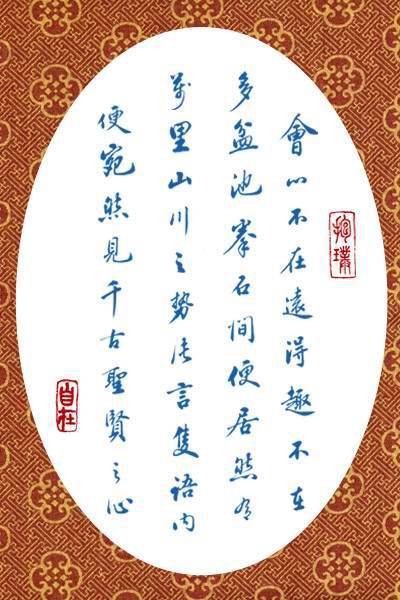 會心不在遠得趣不在
多盆池拳石間便居然有
萬里山川之勢片言隻語內
便宛然見千古聖賢之心
抱璞
自在